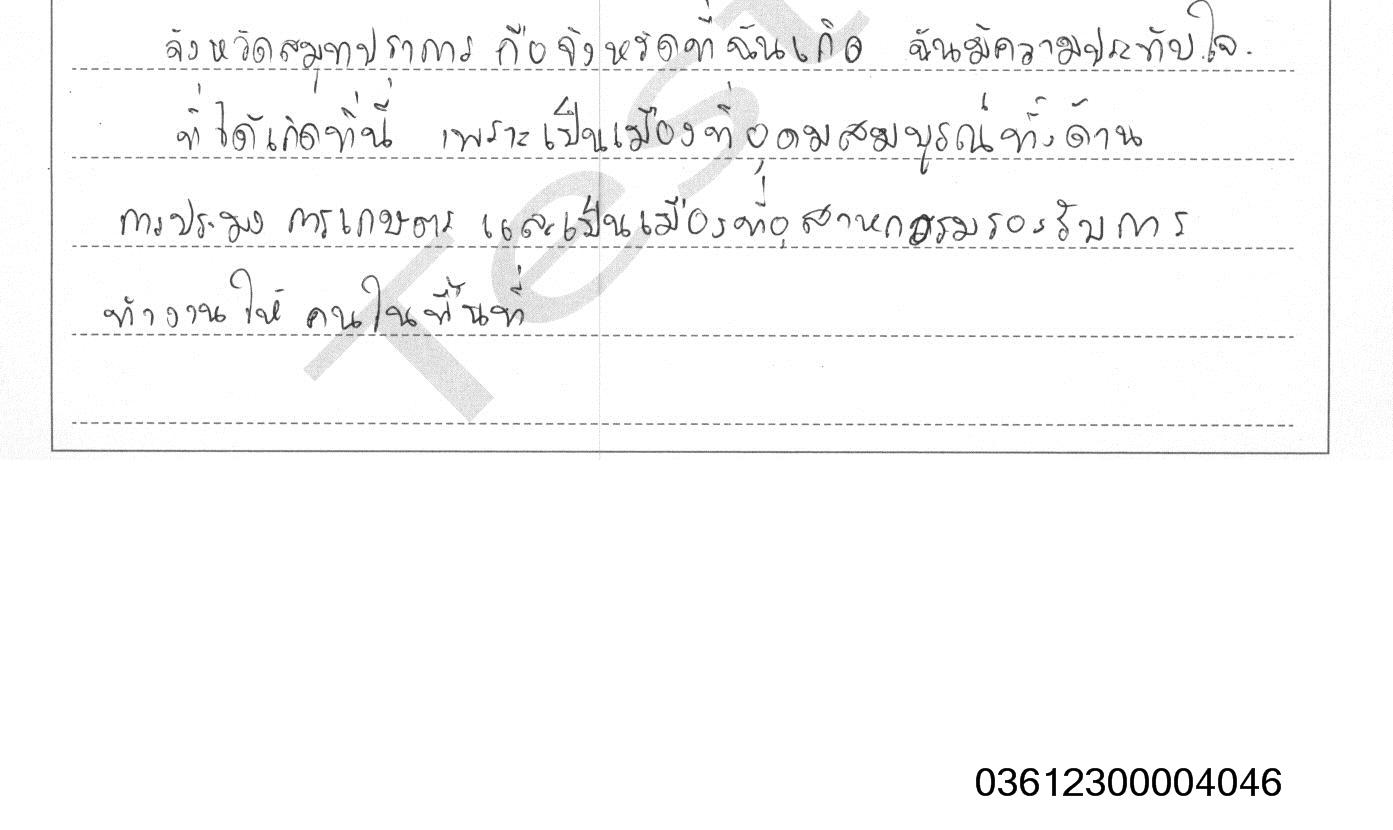 จังหวัดสมุทปราการ คือจังหวัดที่ฉันเกิด ฉันมีความประทับใจ.
ที่ได้เกิดที่นี่ เพราะเป็นเมืองที่อุดมสมบูรณ์ทั้งด้าน
การประมง การเกษตร และเป็นเมืองที่อุสาหกรรมรองรับการ
ทำงานให้ คนในพื้นที่
Test
03612300004046